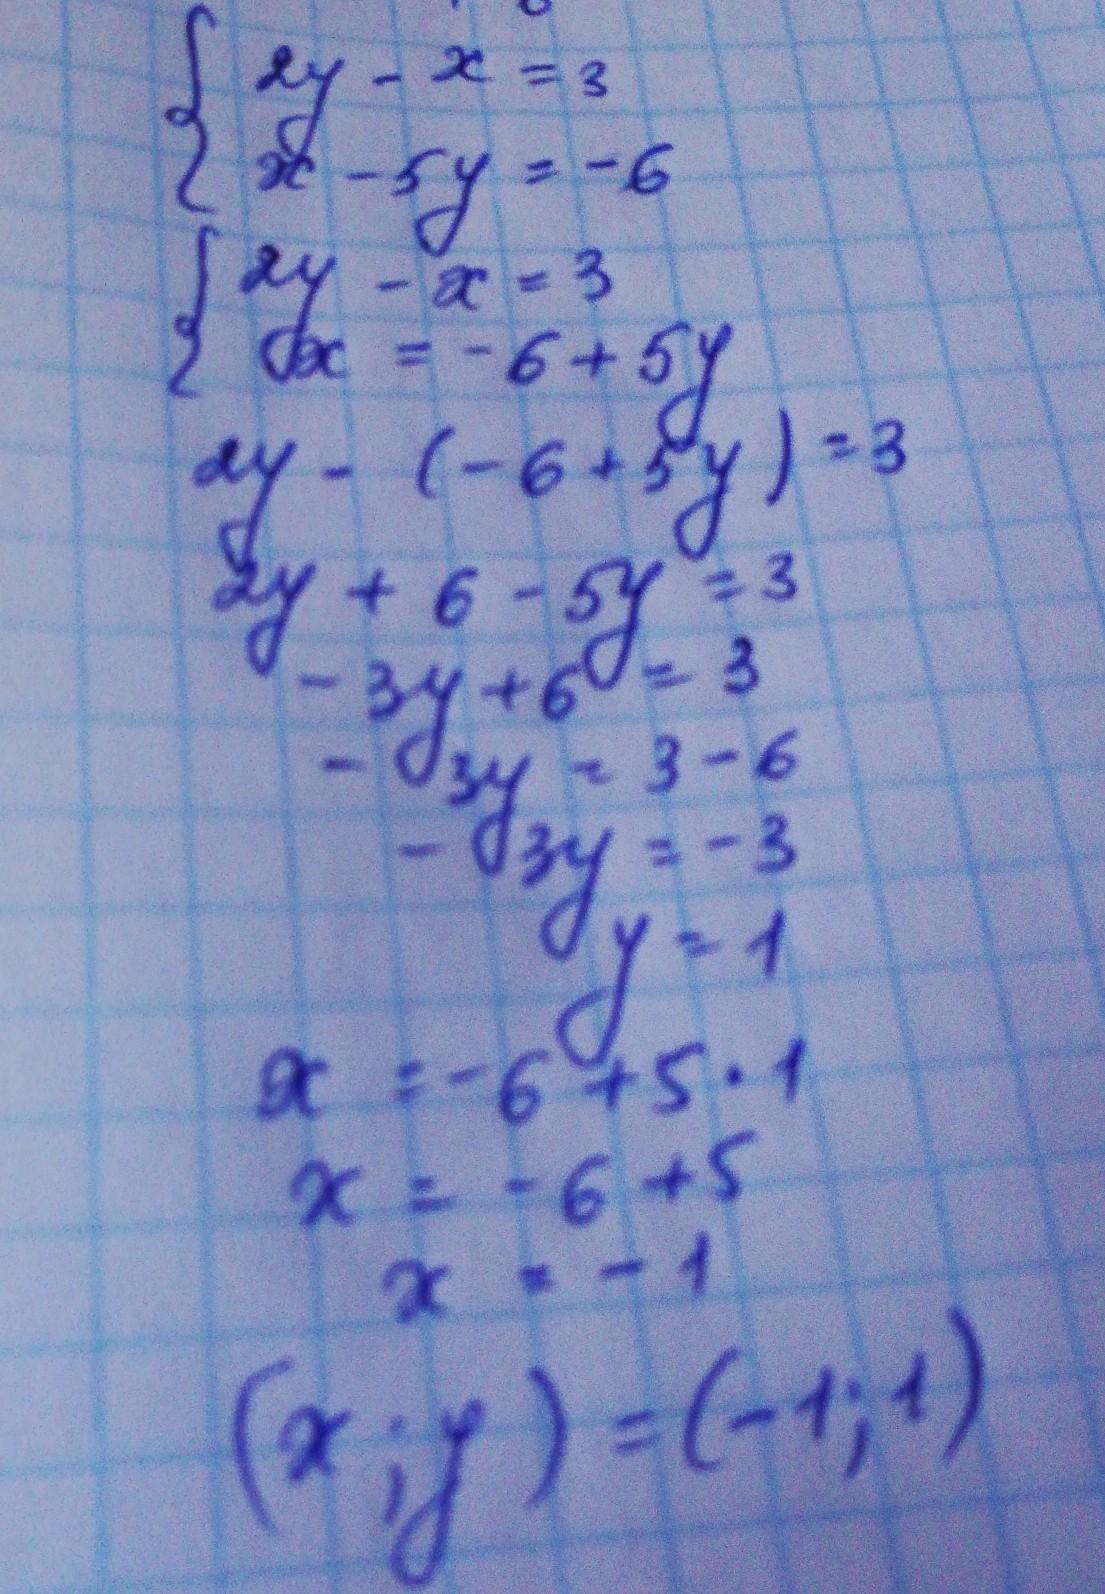 { 2y - x = 3
x - 5y = -6
{ 2y - x = 3
x = -6 + 5y
2y - (-6 + 5y) = 3
2y + 6 - 5y = 3
-3y + 6 = 3
-3y = 3 - 6
-3y = -3
y = 1
x = -6 + 5 · 1
x = -6 + 5
x = -1
(x ; y) = (-1; 1)